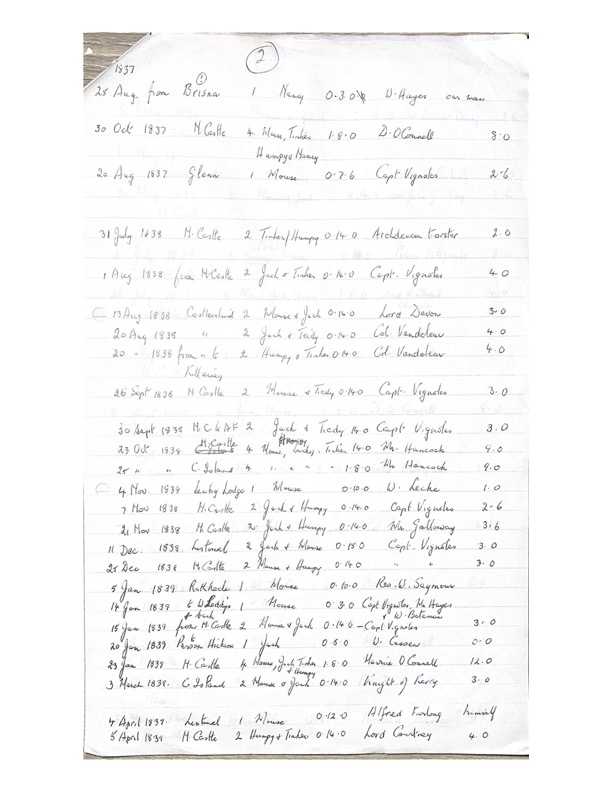 2
1837
25 Aug. from Brisna 1 Nancy 0.3.0 W. Hayes own man
30 Oct 1837 N. Castle 4 Mouse, Tinker 1.8.0 D. O'Connell 8.0
Humpy & Nancy
20 Aug 1837 Glenn 1 Mouse 0.7.6 Capt Vignoles 2-6
31 July 1838 N. Castle 2 Tinker/Humpy 0.14.0 Archdeacon Forster 2.0
1 Aug 1838 from N. Castle 2 Jack & Tinker 0.14.0 Capt. Vignoles 4.0
13 Aug 1838 Castleisland 2 Mouse & Jack 0.14.0 Lord Devon 3.0
20 Aug 1838 " 2 Jack & Teidy 0.14.0 Col. Vandeleur 4.0
20 " 1838 from " to 2 Humpy & Tinker 0.14.0 Col. Vandeleur 4.0
Killarney
26 Sept 1838 N Castle 2 Mouse & Tiedy 0.14.0 Capt. Vignoles 3.0
30 Sept 1838 N.C & AF 2 Jack & Tiedy 14.0 Capt Vignoles 3.0
23 Oct 1838 N. Castle 4 Mouse, Tinker 14.0 Mr. Hancock 9.0
25 " " C. Island 4 " " " " 1.8.0 Mr Hancock 9.0
4 Nov 1838 Lodge 1 Mouse 0.10.0 W. Leake 1.0
7 Nov 1838 N. Castle 2 Jack & Humpy 0.14.0 Capt Vignoles 2-6
21 Nov 1838 N. Castle 2 Jack & Humpy 0.14.0 Mr Galloway 3.6
11 Dec. 1838 Listowel 2 Jack & Mouse 0.18.0 Capt. Vignoles 3.0
25 Dec 1838 N. Castle 2 Mouse & Humpy 0.14.0 " " 3.0
5 Jan 1839 Rathkeale 1 Mouse 0.10.0 Rev. W. Seymour
14 Jan 1839 to W. 1 Mouse 0.3.0 Capt Vignoles, Mr Hayes
& back & W. Bateman
15 Jan 1839 from N. Castle 2 Mouse & Jack 0.14.0 - Capt Vignoles 3.0
20 Jan 1839 to Parson Hickson 1 Jack 0.5.0 W. 0.0
23 Jan 1838 N. Castle 4 Mouse, Jack, Tinker 1.8.0 Maurice O'Connell 12.0
& Humpy
3 March 1838. C Island 2 Mouse & Jack 0.14.0 Knight of Kerry 3.0
4 April 1839. Listowel 1 Mouse 0.12.0 Alfred Furlong himself
5 April 1839 N Castle 2 Humpy & Tinker 0.14.0 Lord Courtney 4.0